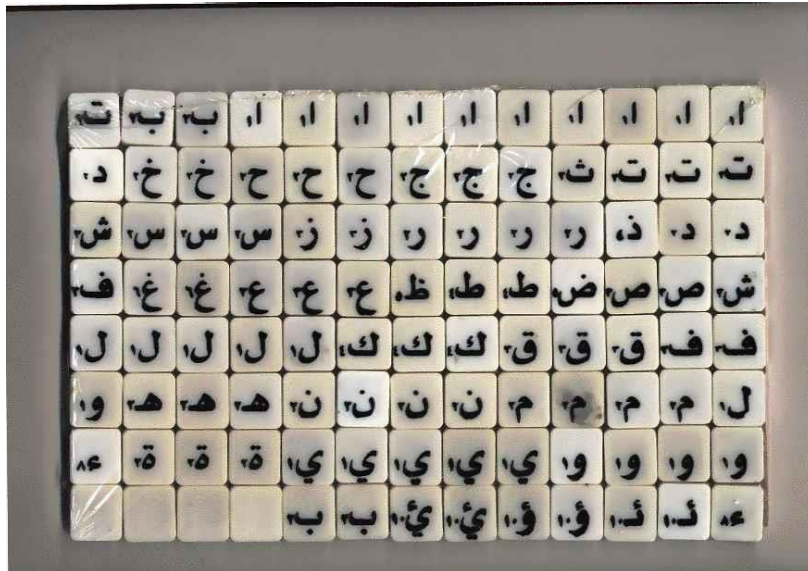 ا ا ا ا ا ا ا ا ا ا ب ب ت
ت ت ت ث ج ج ج ح ح ح خ خ د
د د ذ ر ر ر ر ز ز س س س ش
ش ص ص ض ط ط ظ ع ع ع غ غ ف
ف ف ق ق ق ك ك ك ل ل ل ل ل
ل م م م م ن ن ن ن هـ هـ هـ و
و و و و ي ي ي ي ي ة ة ة ء
ء ئـ ئـ ؤ ؤ ئ ئ ب ب